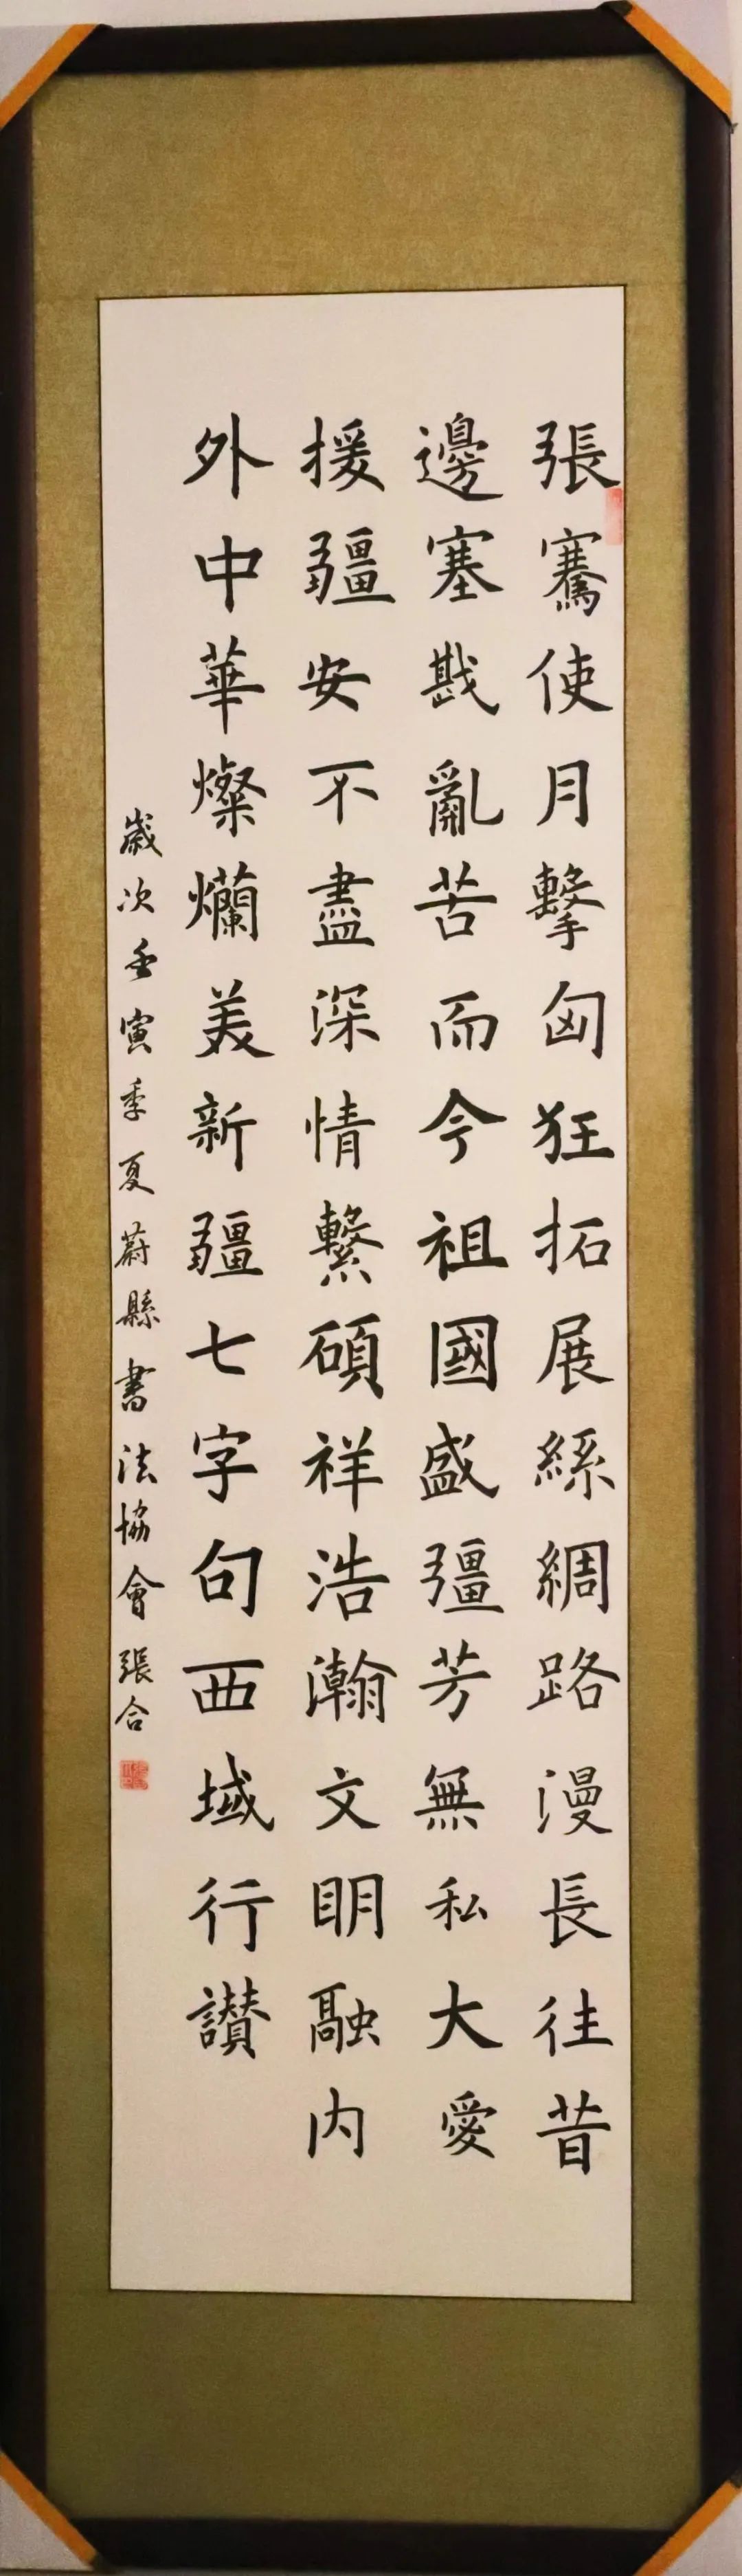 張騫使月擊匈狂拓展絲綢路漫長往昔
邊塞戡亂苦而今祖國盛疆芳無私大愛
援疆安不盡深情繫碩祥浩瀚文明融内
外中華燦爛美新疆七字句西域行讃
歲次壬寅季夏蔚縣書法協會張合